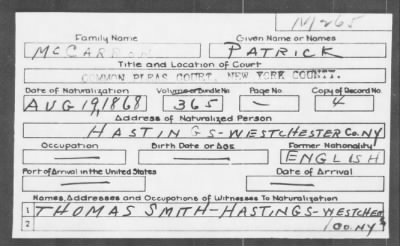 M265
Family Name Given Name or Names
PATRICK
Title and Location of Court
COMMON PLEAS COURT, NEW YORK COUNTY.
Date of Naturalization Volume or Bundle No. Page No. Copy of Record No.
AUG 19, 1868 365 — 4
Address of Naturalized Person
HASTINGS-WESTCHESTER CO. NY
Occupation Birth Date or Age Former Nationality
— — ENGLISH
Port of Arrival in the United States Date of Arrival
— —
Names, Addresses and Occupations of Witnesses To Naturalization
1 THOMAS SMITH-HASTINGS-WESTCHESTER
2 CO. NY